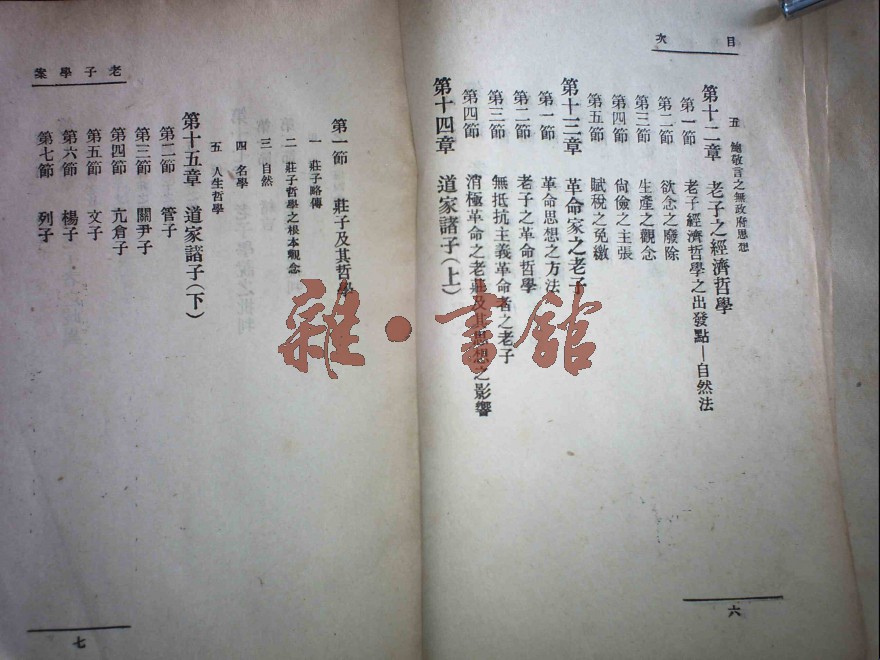 目次
五　鮑敬言之無政府思想
第十二章　老子之經濟哲學
第一節　老子經濟哲學之出發點—自然法
第二節　欲念之廢除
第三節　生產之觀念
第四節　尙儉之主張
第五節　賦稅之免繳
第十三章　革命家之老子
第一節　革命思想之方法
第二節　老子之革命哲學
第三節　無抵抗主義革命者之老子
第四節　消極革命之老莊及其思想之影響
第十四章　道家諸子（上）
六
老子學案
第一節　莊子及其哲學
一　莊子略傳
二　莊子哲學之根本觀念
三　自然
四　名學
五　人生哲學
第十五章　道家諸子（下）
第二節　管子
第三節　關尹子
第四節　亢倉子
第五節　文子
第六節　楊子
第七節　列子
七
雜·書館